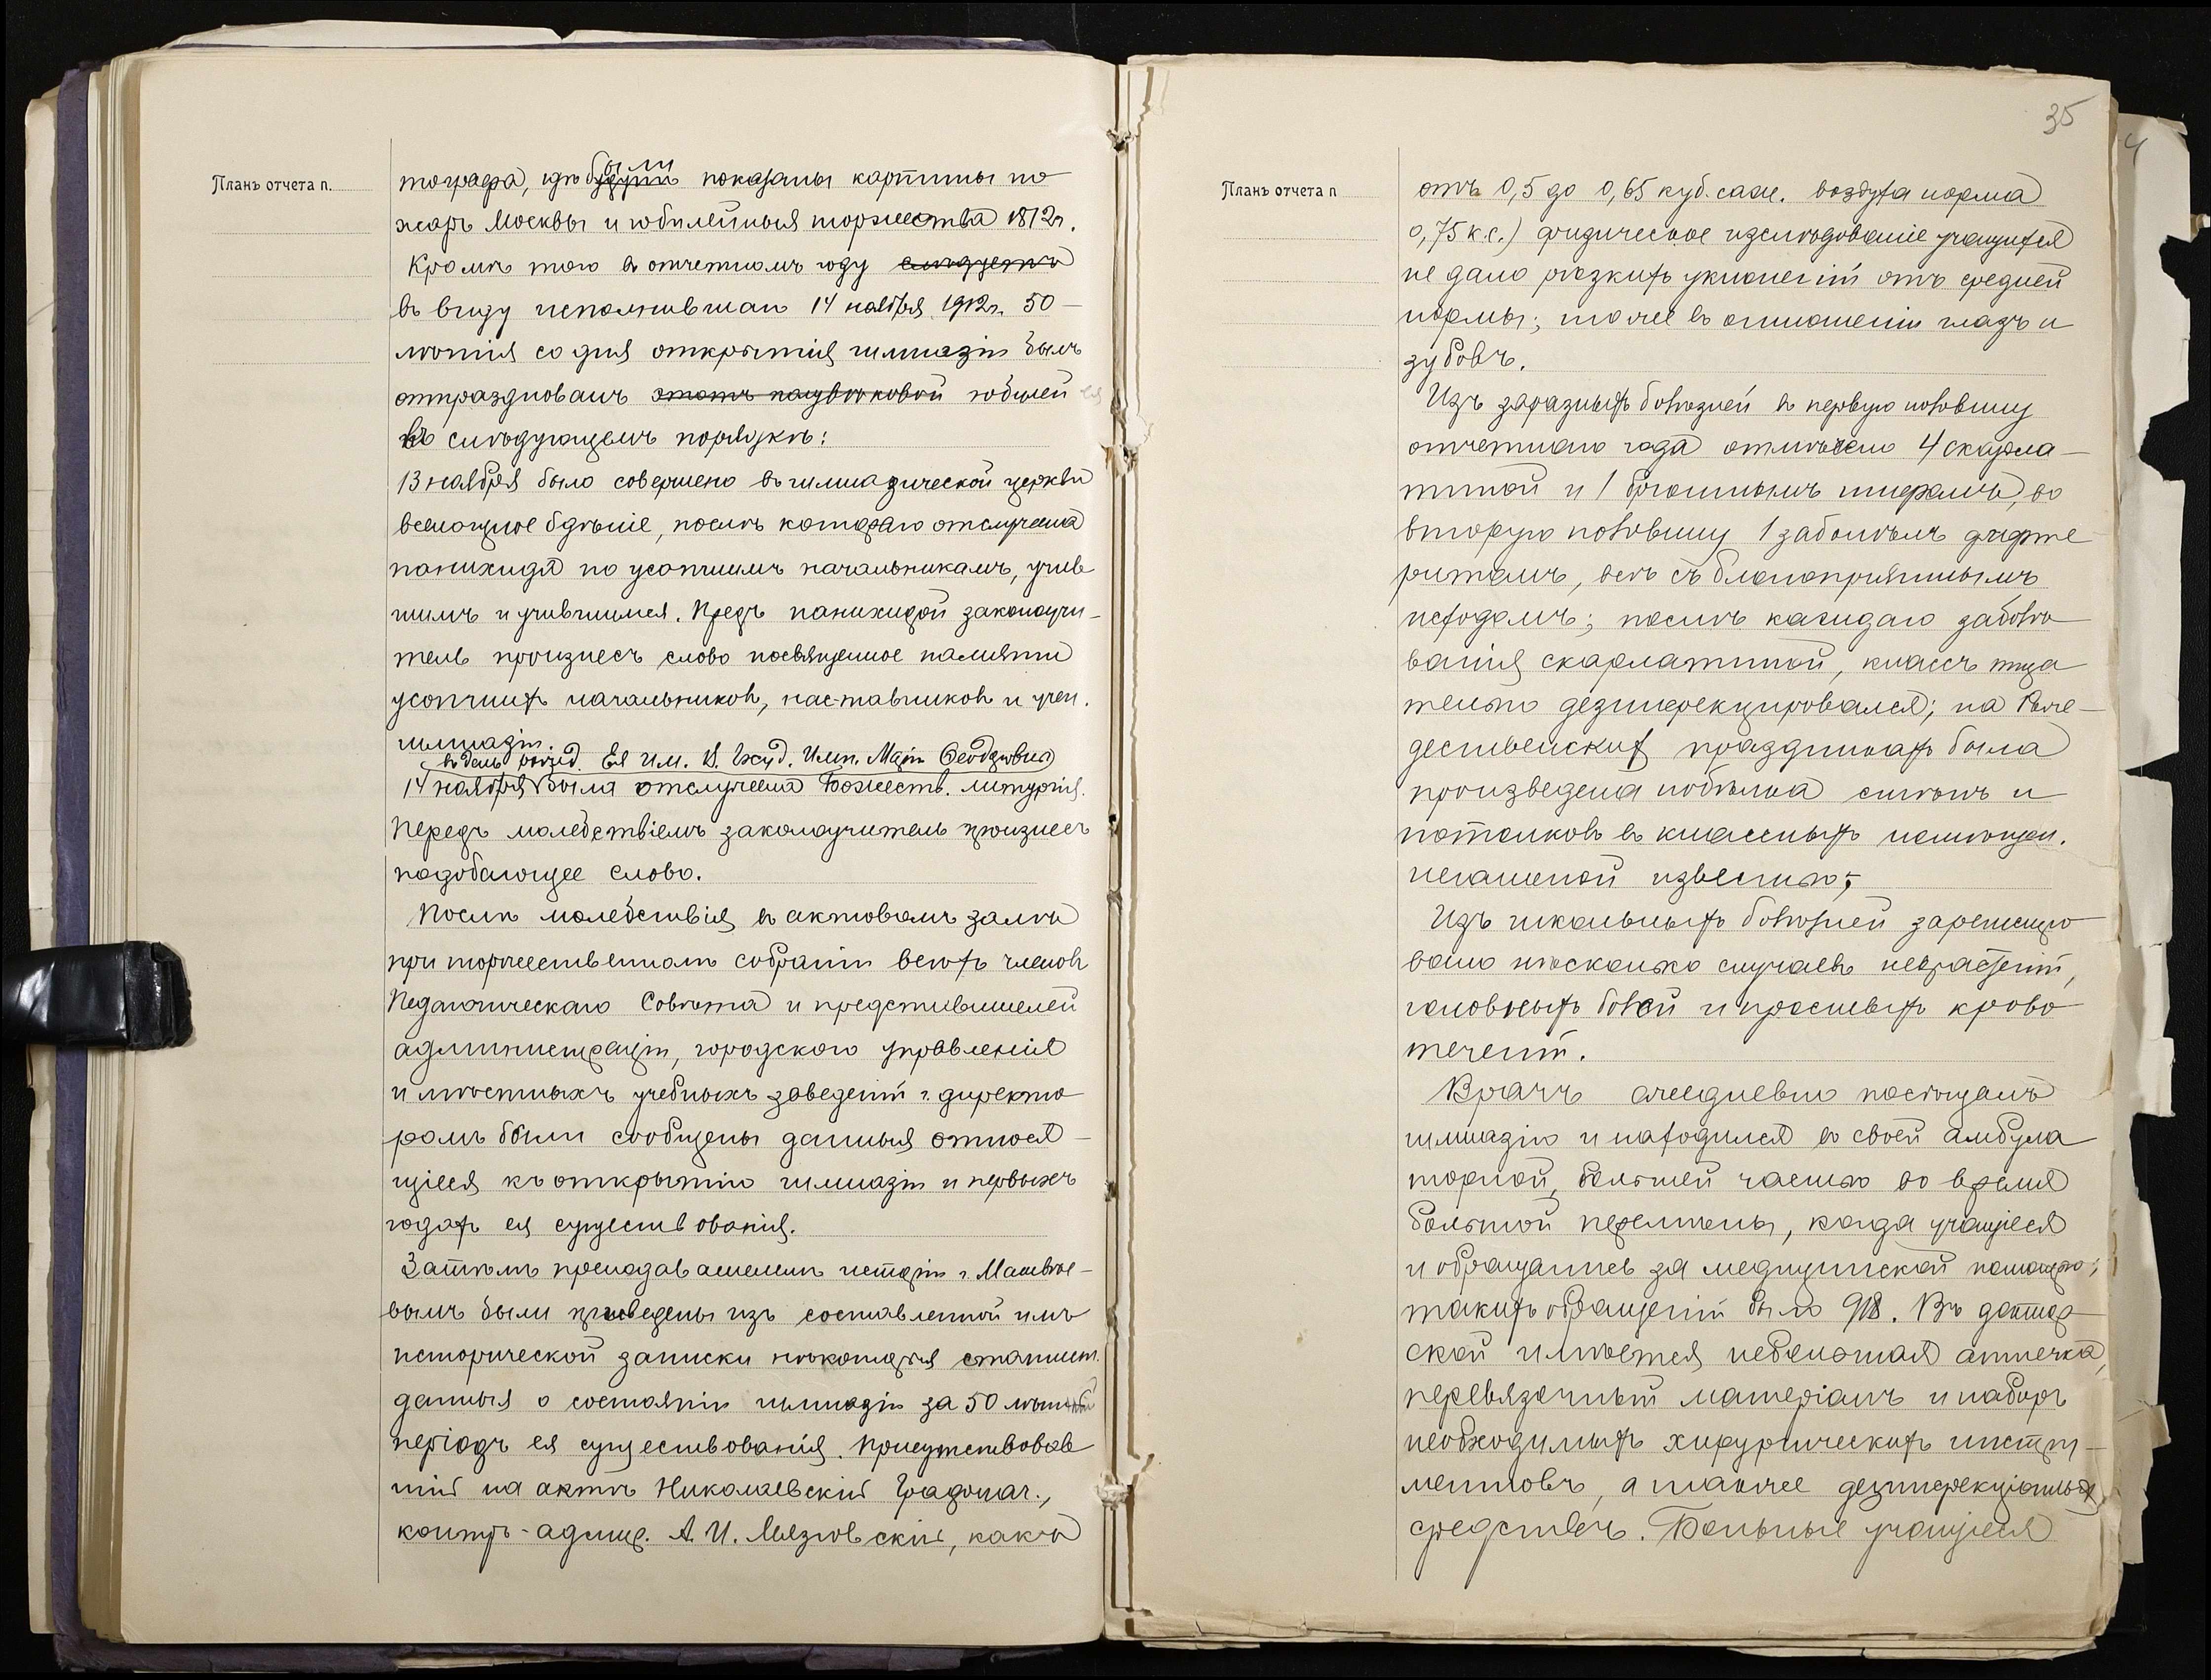 Планъ отчета п.
тографа, гдѣ были показаны картины по
жаръ Москвы и юбилейныя торжества 1812 г.
Кромѣ того въ отчетномъ году слѣдуетъ
въ виду исполнившаго 14 ноября 1912 г. 50-
лѣтія со дня открытія гимназіи былъ
отпразднованъ этотъ полувѣковой юбилей ея
въ слѣдующемъ порядкѣ:
13 ноября было совершено въ гимназической церкви
всенощное бдѣніе, послѣ котораго отслужена
панихида по усопшимъ начальникамъ, учив
шимъ и учившимся. Предъ панихидой законоучи-
тель произнесъ слово посвященное памяти
усопшихъ начальниковъ, наставниковъ и учен.
гимназіи.
въ день рожд. Ея Им. В. Госуд. Имп. Маріи Ѳеодоровны
14 ноября была отслужена Божеств. литургія.
Передъ молебствіемъ законоучитель произнесъ
подобающее слово.
Послѣ молебствія въ актовомъ залѣ
при торжественномъ собраніи всѣхъ членовъ
Педагогическаго Совѣта и представителей
администраціи, городского управленія
и мѣстныхъ учебныхъ заведеній г. директо
ромъ были сообщены данныя относя-
щіеся къ открытію гимназіи и первыхъ
годахъ ея существованія.
Затѣмъ преподавателемъ исторіи г. Матвѣе-
вымъ были приведены изъ составленной имъ
исторической записки нѣкоторыя статист.
данныя о состояніи гимназіи за 50 лѣтній
періодъ ея существованія. Присутствовав
шій на актѣ Николаевскій Градонач.,
контръ-адмир. А. И. Мязговскій, какъ
35
Планъ отчета п
отъ 0,5 до 0,65 куб. саж. воздуха норма
0,75 к.с.) физическое изслѣдованіе учащихся
не дало рѣзкихъ уклоненій отъ средней
нормы; тоже въ отношеніи глазъ и
зубовъ.
Изъ заразныхъ болѣзней въ первую половину
отчетнаго года отмѣчено 4 скарла-
тиной и 1 брюшнымъ тифомъ, во
вторую половину 1 заболѣлъ дифте
ритомъ, всѣ съ благопріятнымъ
исходомъ; послѣ каждаго заболѣ
ванія скарлатиной, классъ тща
тельно дезинфекцировался; на Рож-
дественскихъ праздникахъ была
произведена побѣлка стѣнъ и
потолковъ въ классныхъ помѣщен.
негашеной известью;
Изъ школьныхъ болѣзней зарегистро
вано нѣсколько случаевъ неврастеніи,
головныхъ болей и простыхъ крово
теченій.
Врачъ ежедневно посѣщалъ
гимназію и находился въ своей амбула
торной, большей частью во время
большой перемѣны, когда учащіеся
и обращались за медицинской помощью;
такихъ обращеній было 918. Въ доктор-
ской имѣется небольшая аптечка,
перевязочный матеріалъ и наборъ
необходимыхъ хирургическихъ инстру-
ментовъ, а также дезинфекціонныхъ
средствъ. Больные учащіеся